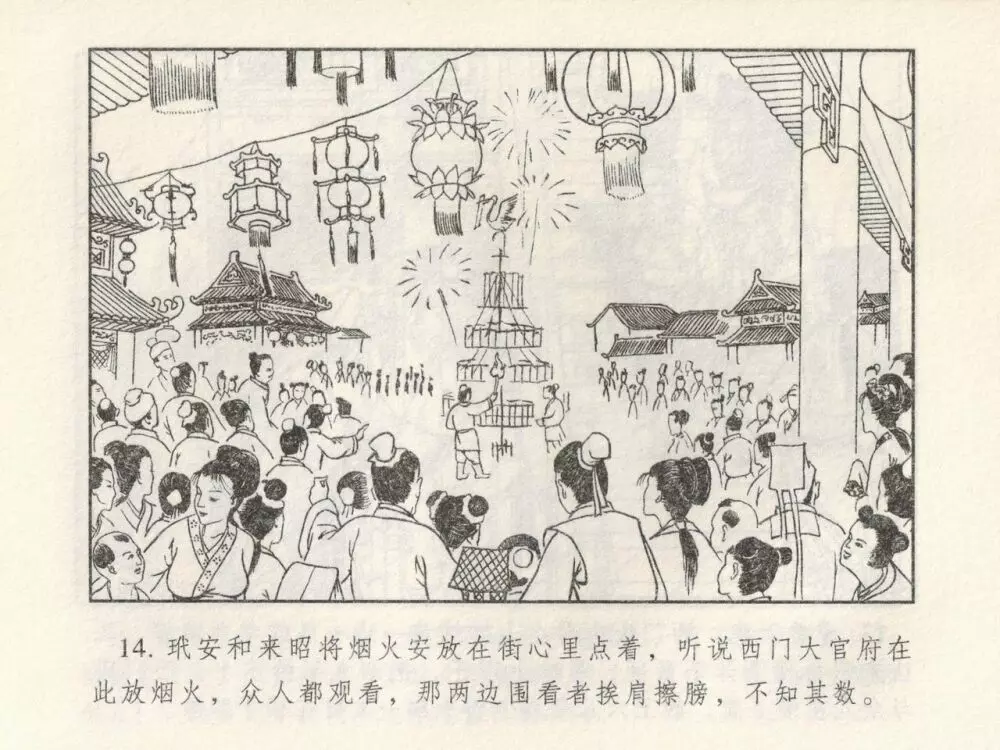 14. 玳安和来昭将烟火安放在街心里点着，听说西门大官府在
此放烟火，众人都观看，那两边围看者挨肩擦膀，不知其数。